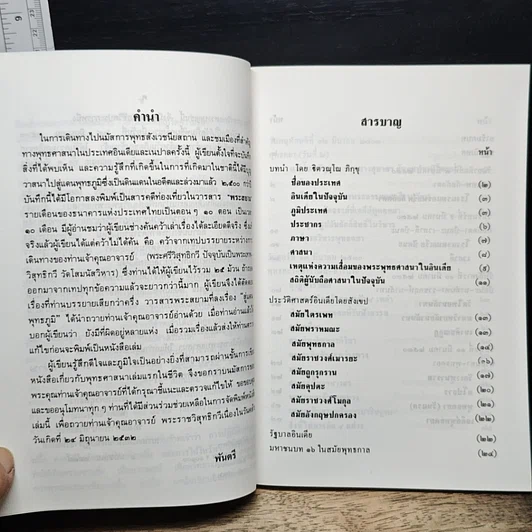 คำนำ
ในการเดินทางไปนมัสการพุทธสังเวชนียสถาน และชมเมืองที่สำคัญ
ทางพุทธศาสนาในประเทศอินเดียและเนปาลครั้งนี้ ผู้เขียนตั้งใจที่จะบันทึก
สิ่งที่ได้พบเห็น และความรู้สึกที่เกิดขึ้นในการที่เกิดมาในชาตินี้ได้มี
วาสนาไปสู่แดนพุทธภูมิซึ่งเป็นดินแดนในอดีตและล่วงมาแล้ว ๒๕๐๐
บันทึกนี้ได้มีโอกาสลงพิมพ์เป็นสารคดีท่องเที่ยวในวารสาร
รายเดือนของธนาคารแห่งประเทศไทยเป็นตอนๆ ๑๐ ตอน เป็นเวลา
๑๐ เดือน มีผู้อ่านชมว่าผู้เขียนช่างค้นคว้าเล่าเรื่องได้ละเอียดดีจริง
จริงแล้วผู้เขียนได้แต่คว้าไม่ได้ค้น คือ คว้าจากเทปบรรยายระหว่าง
เดินทางของ ท่านเจ้าคุณอาจารย์ (พระศรีวิสุทธิกวี ปัจจุบันเป็นพระราช
วิสุทธิกวี วัดโสมนัสวิหาร) ซึ่งท่านได้ให้ผู้เขียนไว้รวม ๒๕ ม้วน
ออกมาจากเทปทุกข้อความแล้วจะยาวกว่านี้มาก ผู้เขียนจึงได้
เรื่องที่ท่านบรรยายเสียกว่าครึ่ง วารสารพระสยามที่ลงเรื่อง
พุทธภูมิ" ได้นำถวายท่านเจ้าคุณอาจารย์อ่านด้วย
บอกผู้เขียนว่า ยังมีที่ผิดอยู่หลายแห่ง เมื่อรวมเรื่องแล้วส่งให้ท่าน
แก้ไขก่อนจะพิมพ์เป็นหนังสือเล่ม
ผู้เขียนรู้สึกดีใจและภูมิใจเป็นอย่างยิ่งที่สามารถผ่านขั้นการ
หนังสือเกี่ยวกับพุทธศาสนาเล่มแรกในชีวิต จึงขอกราบนมัสการ
พระคุณท่านเจ้าคุณอาจารย์ที่ได้กรุณาชี้แนะและตรวจแก้ไขให้
และขออนุโมทนาทุก ๆ ท่านที่ได้มีส่วนร่วมช่วยเหลือในการจัดพิมพ์หนังสือ
เล่มนี้ เพื่อถวายท่านเจ้าคุณอาจารย์ พระราชวิสุทธิกวีเนื่องในวัน
วันเกิดที่ ๒๔ มิถุนายน ๒๕๓๒
พันตรี
สารบาญ
หน้า
บทนำ โดย ชิตวณฺโณ ภิกฺขุ
ชื่อของประเทศ (๒)
อินเดียในปัจจุบัน (๓)
ภูมิประเทศ (๓)
ประชากร (๓)
ภาษา (๓)
ศาสนา (๔)
เหตุแห่งความเสื่อมของพระพุทธศาสนาในอินเดีย (๕)
สถิติผู้นับถือศาสนาในปัจจุบัน (๑๑)
ประวัติศาสตร์อินเดียโดยสังเขป
สมัยไตรเพท (๑๓)
สมัยพราหมณะ (๑๓)
สมัยพุทธกาล (๑๔)
สมัยราชวงศ์เมารยะ (๑๖)
สมัยอนุราชาน (๑๗)
สมัยคุปตะ (๒๐)
สมัยราชวงศ์โมกุล (๒๑)
สมัยอังกฤษปกครอง (๒๒)
รัฐบาลอินเดีย (๒๒)
มหาชนบท ๑๖ ในสมัยพุทธกาล (๒๔)